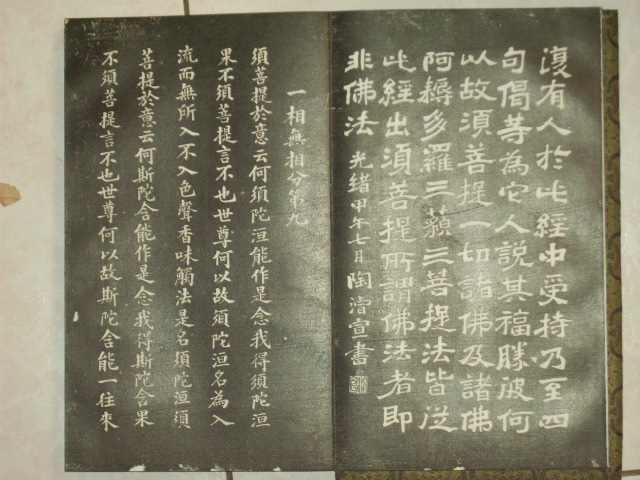 復有人於此經中受持乃至四
句偈等為它人說其福勝彼何
以故須菩提一切諸佛及諸佛
阿耨多羅三藐三菩提法皆從
此經出須菩提所謂佛法者即
非佛法 光緒甲午七月陶濬宣書
一相無相分第九
須菩提於意云何須陀洹能作是念我得須陀洹
果不須菩提言不也世尊何以故須陀洹名為入
流而無所入不入色聲香味觸法是名須陀洹須
菩提於意云何斯陀含能作是念我得斯陀含果
不須菩提言不也世尊何以故斯陀含能一往來